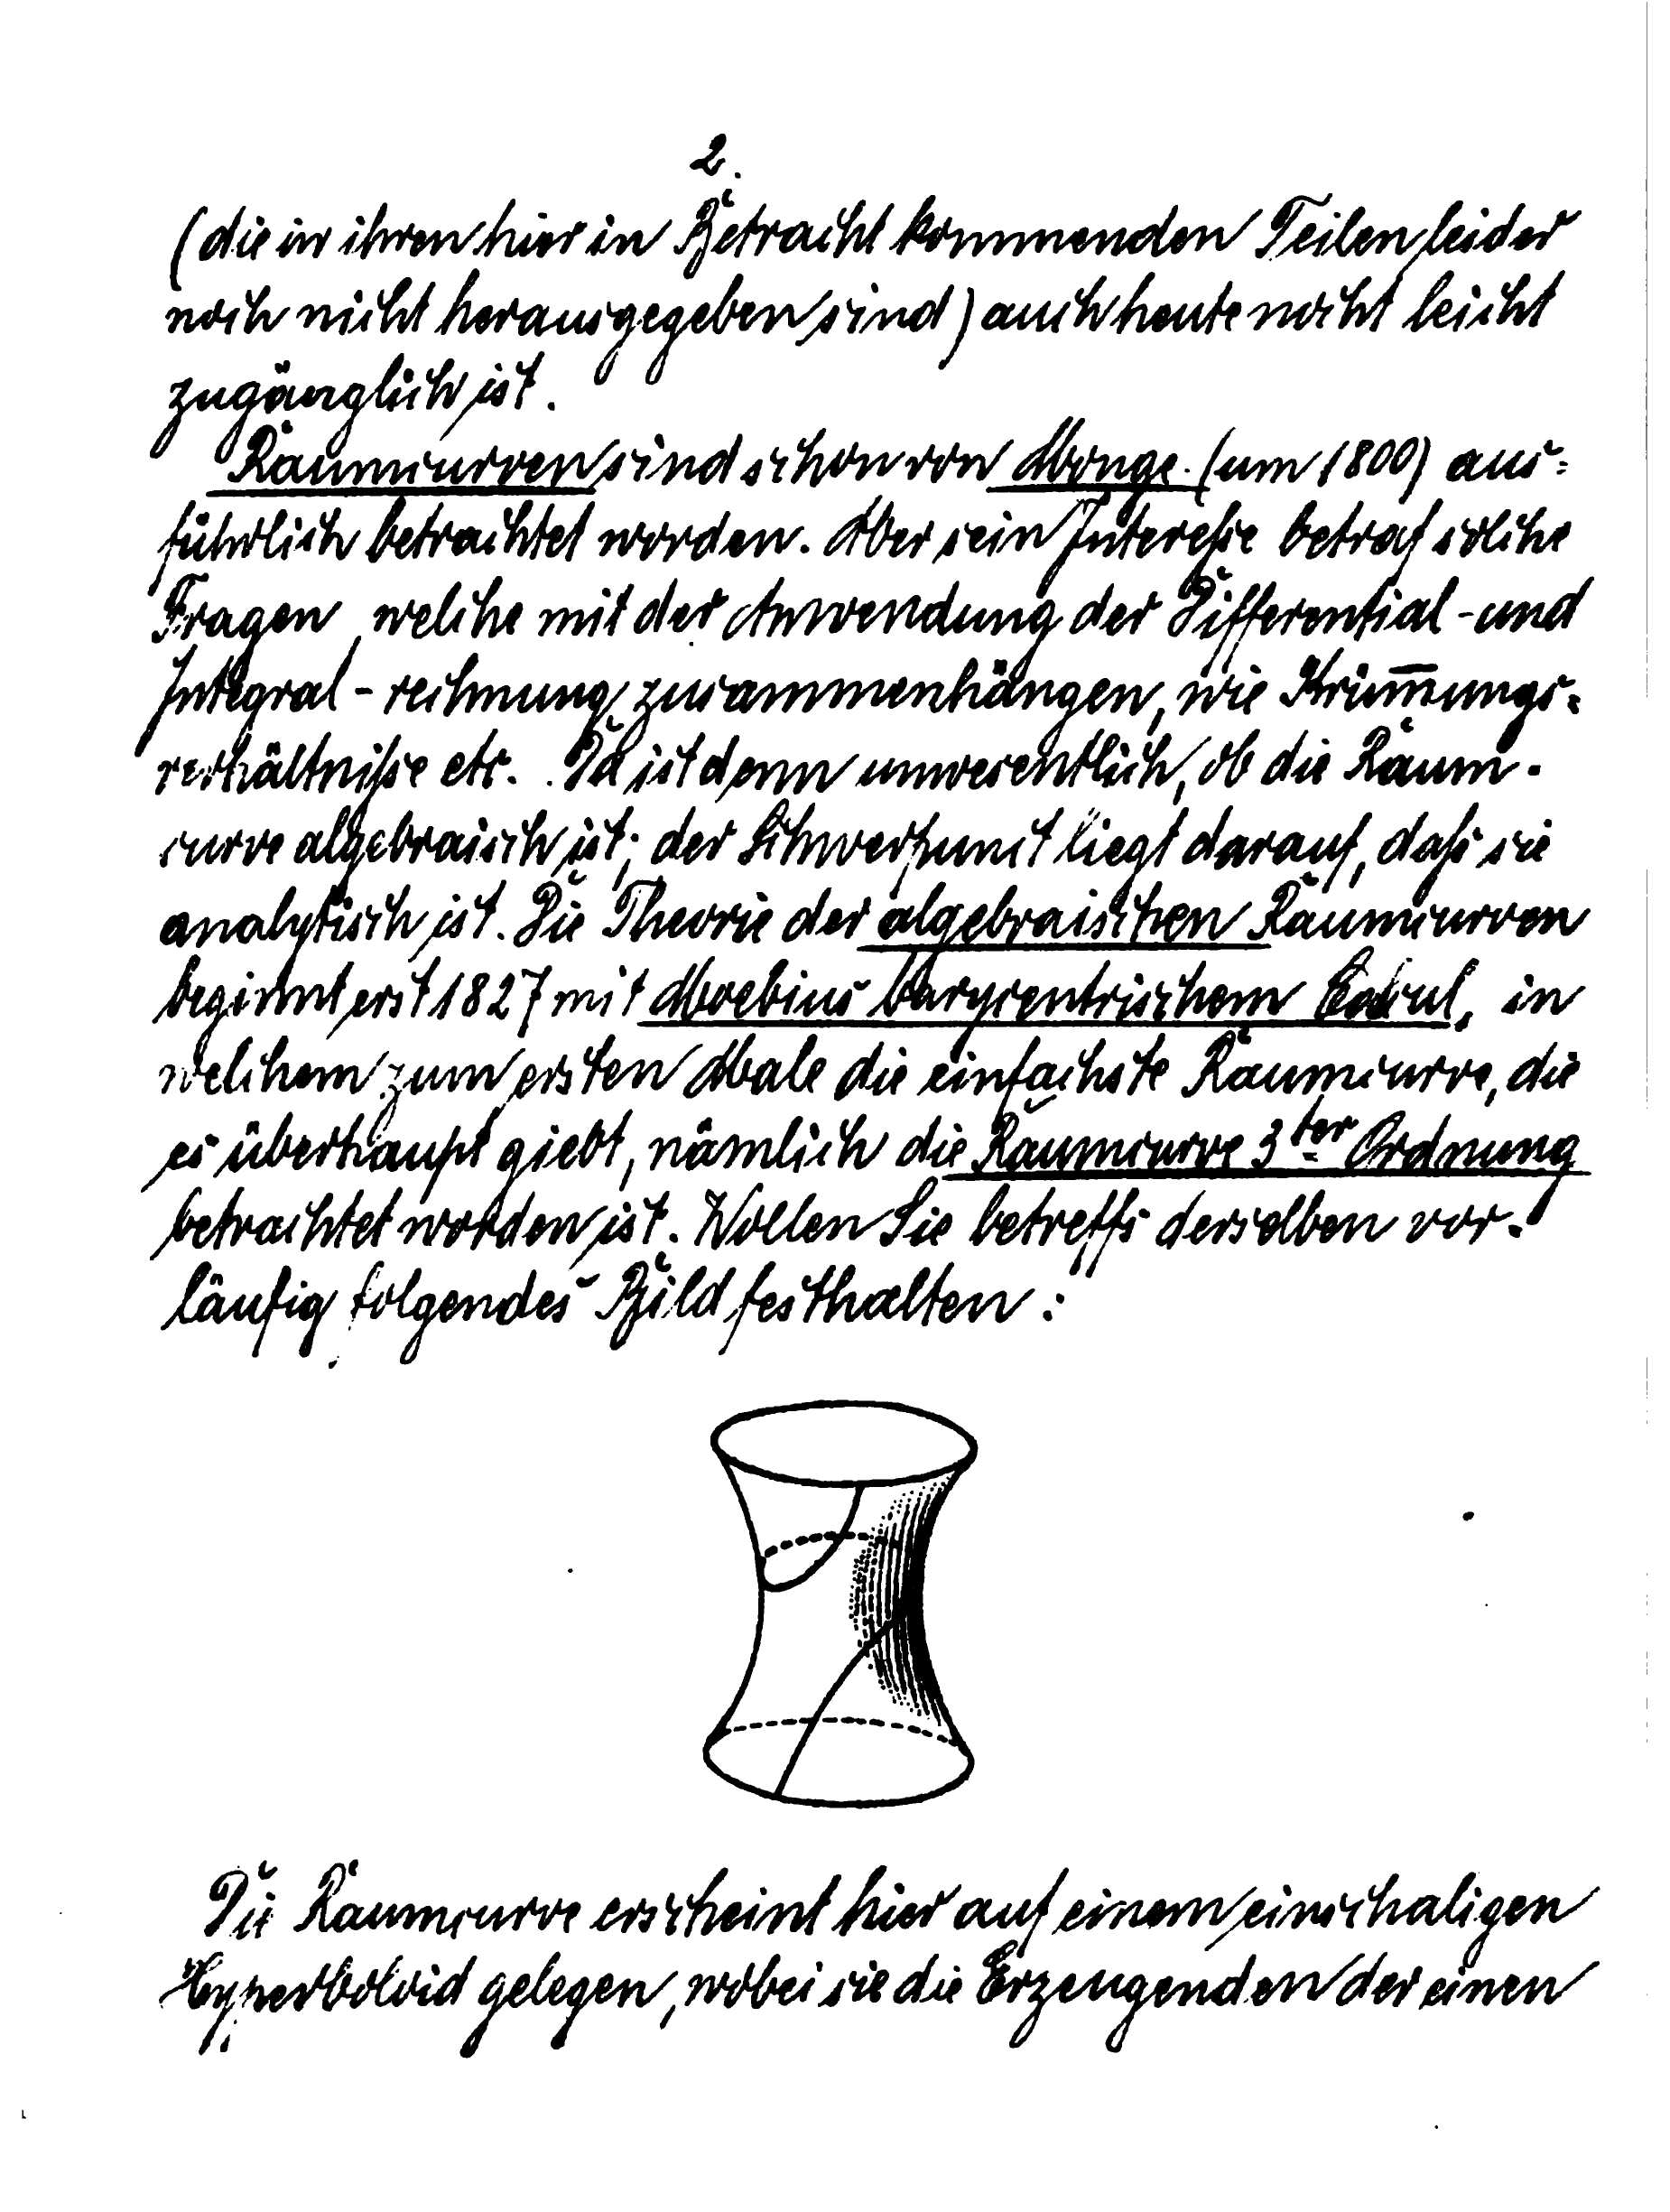 2.
(die in ihren hier in Betracht kommenden Teilen leider
noch nicht herausgegeben sind) auch heute nicht leicht
zugänglich ist.
Raumcurven sind schon von Monge (um 1800) aus=
führlich betrachtet worden. Aber sein Interesse betraf solche
Fragen, welche mit der Anwendung der Differential-und
Integral-rechnung zusammenhängen, wie Krüm̅ungs=
verhältnisse etc. Da ist denn unwesentlich, ob die Raum-
curve algebraisch ist; der Schwerpunct liegt darauf, dass sie
analytisch ist. Die Theorie der algebraischen Raumcurven
beginnt erst 1827 mit Moebius barycentrischem Calcul, in
welchem zum ersten Male die einfachste Raumcurve, die
es überhaupt giebt, nämlich die Raumcurve 3ter Ordnung
betrachtet worden ist. Wollen Sie betreffs derselben vor-
läufig folgendes Bild festhalten:
Die Raumcurve erscheint hier auf einem einschaligen
Hyperboloid gelegen, wobei sie die Erzeugenden der einen